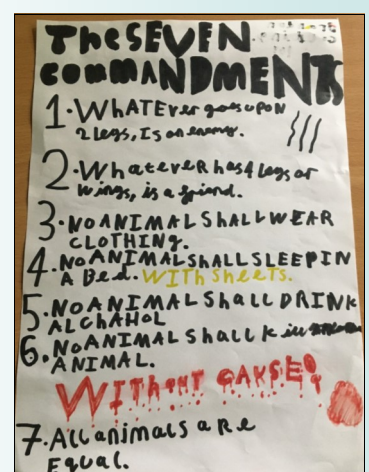 The SEVEN
COMMANDMENTS
1. WhATEver goes upon
2 legs, Is an enemy.
2. WhateveR has 4 legs or
Wings, is a friend.
3. NO ANIMAL ShALL WEAR
CLOTHING.
4. NO ANIMAL SHALL SLEEP IN
A Bed. WITH Sheets.
5. NO ANIMAL Shall DRINK
ALCHAHOL
6. NO ANIMAL Shall Kill
ANIMAL.
WITHOUT CAUSE
7. All animals aRe
Equal.